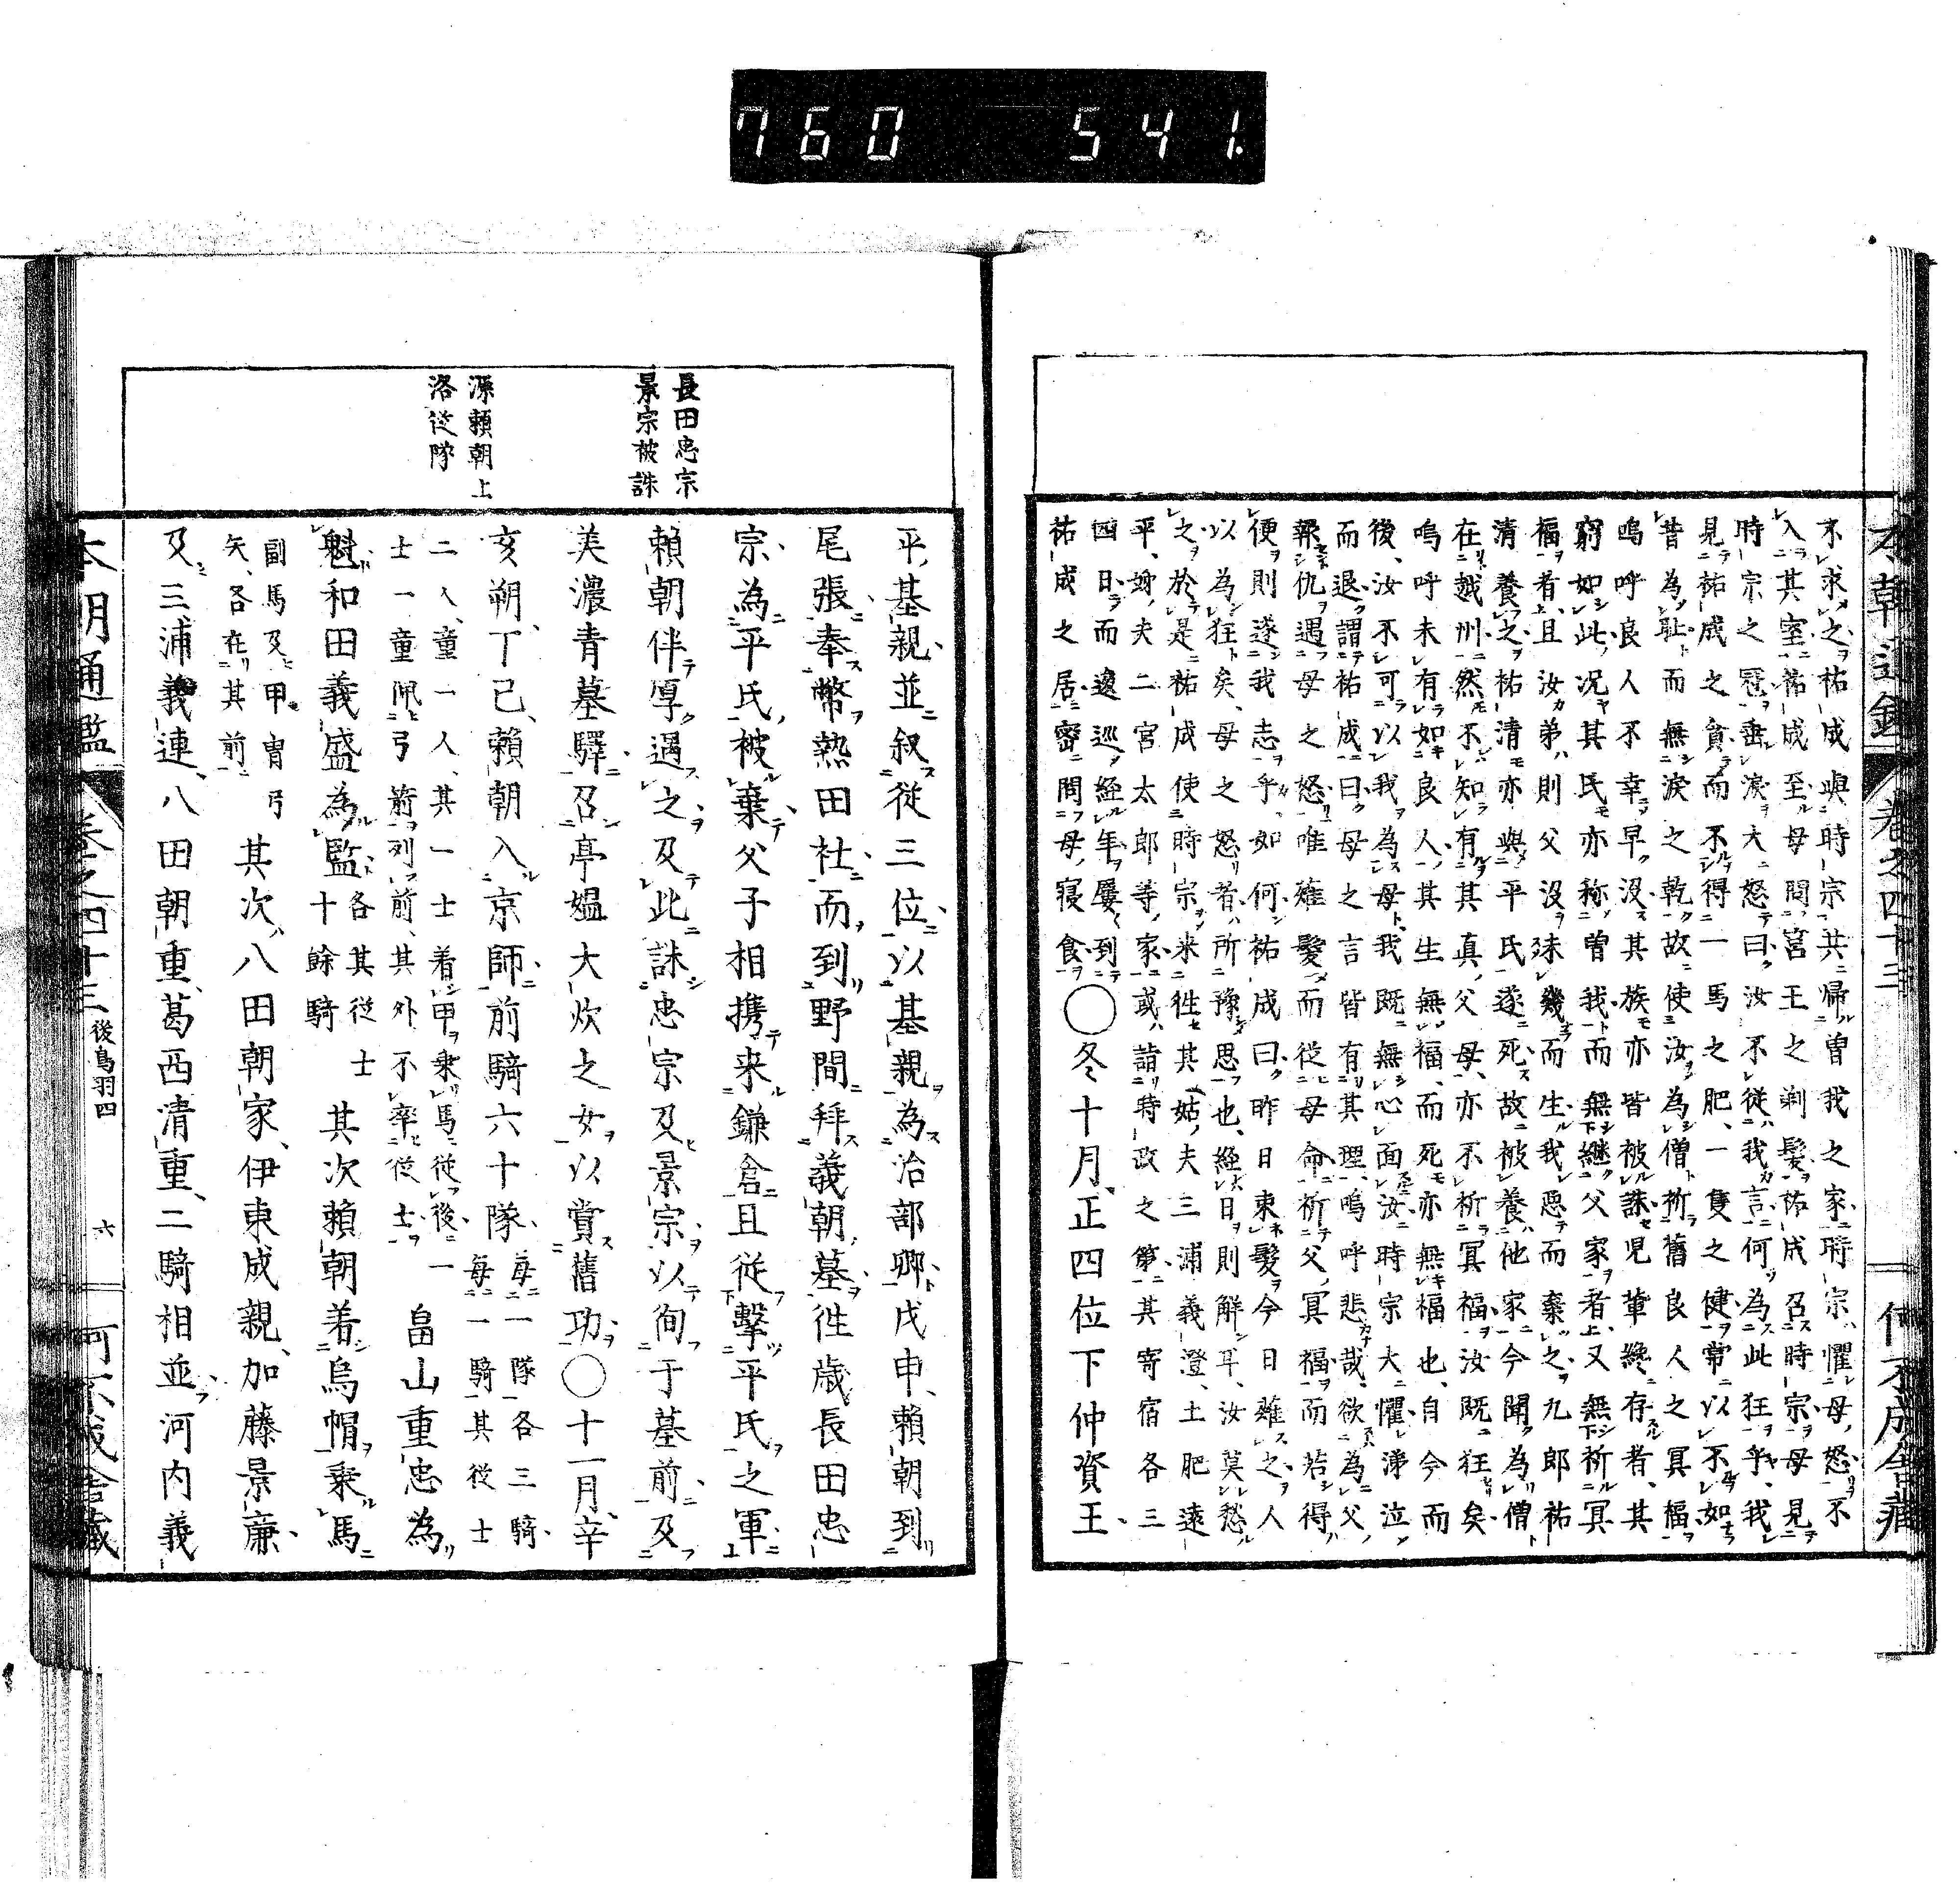 760 541.
本朝通鑑 卷之四十三
不求之祐成與時宗共歸曽我之家時宗懼母怒不
入其室祐成至母問宮王之剃髮祐成召時宗母見
時宗之冠垂淚大怒曰汝不從我言何為此狂乎我
見祐成之貪而不得一馬之肥一隻之健常以不如
昔為耻而無淚之乾故使汝為僧祈舊良人之冥福
嗚呼良人不幸早沒其族亦皆被誅兒輩纔存者其
窮如此況其氏亦称曽我而無繼父家者又無祈冥
福者且汝弟則父沒未幾而生我惡而棄之九郎祐
清養之祐清亦與平氏遂死故被養他家今聞為僧
在越州然不知有其真父母亦不祈冥福汝既狂矣
嗚呼未有如良人其生無福而死亦無福也自今而
後汝不可以我為母我既無心面汝時宗大懼涕泣
而退謂祐成曰母之言皆有其理嗚呼悲哉欲為父
報仇遇母之怒唯薙髮而從母命祈父冥福而若得
便則遂我志乎如何祐成曰昨日束髮今日薙之人
以為狂矣母之怒者所豫思也經日則解耳汝莫愁
之於是祐成使時宗來往其姑夫三浦義澄土肥遠
平姉夫二宮太郎等家或詣時政之第其寄宿各三
四日而逡巡經年屢到
祐成之居密問母寢食〇冬十月正四位下仲資王
長田忠宗
景宗被誅
源頼朝上
洛從隊
平基親並叙從三位以基親為治部卿戊申頼朝到
尾張奉幣熱田社而到野間拜義朝墓徃歳長田忠
宗為平氏被棄父子相携來鎌倉且從擊平氏之軍
頼朝佯厚遇之及此誅忠宗及景宗以徇于墓前及
美濃青墓驛召亭媼大炊之女以賞舊功〇十一月辛
亥朔丁巳頼朝入京師前騎六十隊每一隊各三騎每一騎其從士
二人童一人其一士着甲乘馬從後一
士一童佩弓前列前其外不率從士畠山重忠為
魁和田義盛為監各其從士十餘騎其次頼朝着烏帽乘馬
副馬及甲冑弓
矢各在其前其次八田朝家伊東成親加藤景廉
及三浦義連八田朝重葛西清重二騎相並河内義
本朝通鑑 卷之四十三 後鳥羽四 六